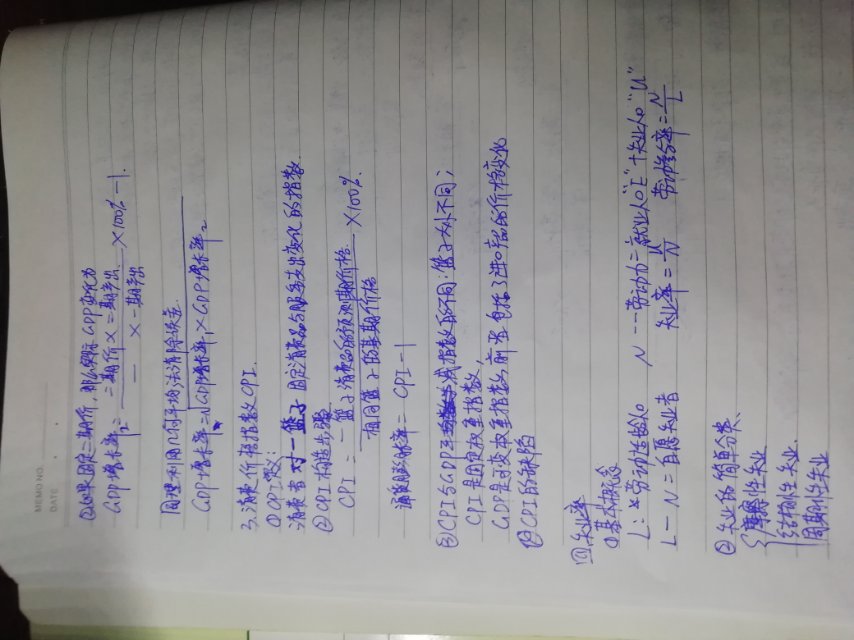 MEMO NO.
DATE
②如果固定二期价，那么实际GDP变化为
GDP增长率₂ = 二期价×二期产出 / 二 × 一期产出 ×100%-1.
同理利用几何平均法消除误差
GDP增长率=√GDP增长率₁×GDP增长率₂
3.消费价格指数CPI.
①CPI指数:
消费者对一篮子固定消费品与服务支出变化的指数.
②CPI构造步骤
CPI = 一篮子消费品的预测期价格 / 相同篮子的基期价格 ×100%.
通货膨胀率 = CPI-1
③CPI与GDP平减指数的不同:篮子大小不同;
CPI是固定权重指数,
GDP是可变权重指数,前者包括了进口产品的价格变化
④CPI的缺陷
四失业率
①基本概念
L:劳动适龄人口 N--劳动力=就业人口"E"+失业人口"U"
L-N=自愿失业者 失业率=U/N 劳动参与率=N/L
②失业的简单分类
摩擦性失业
结构性失业.
周期性失业